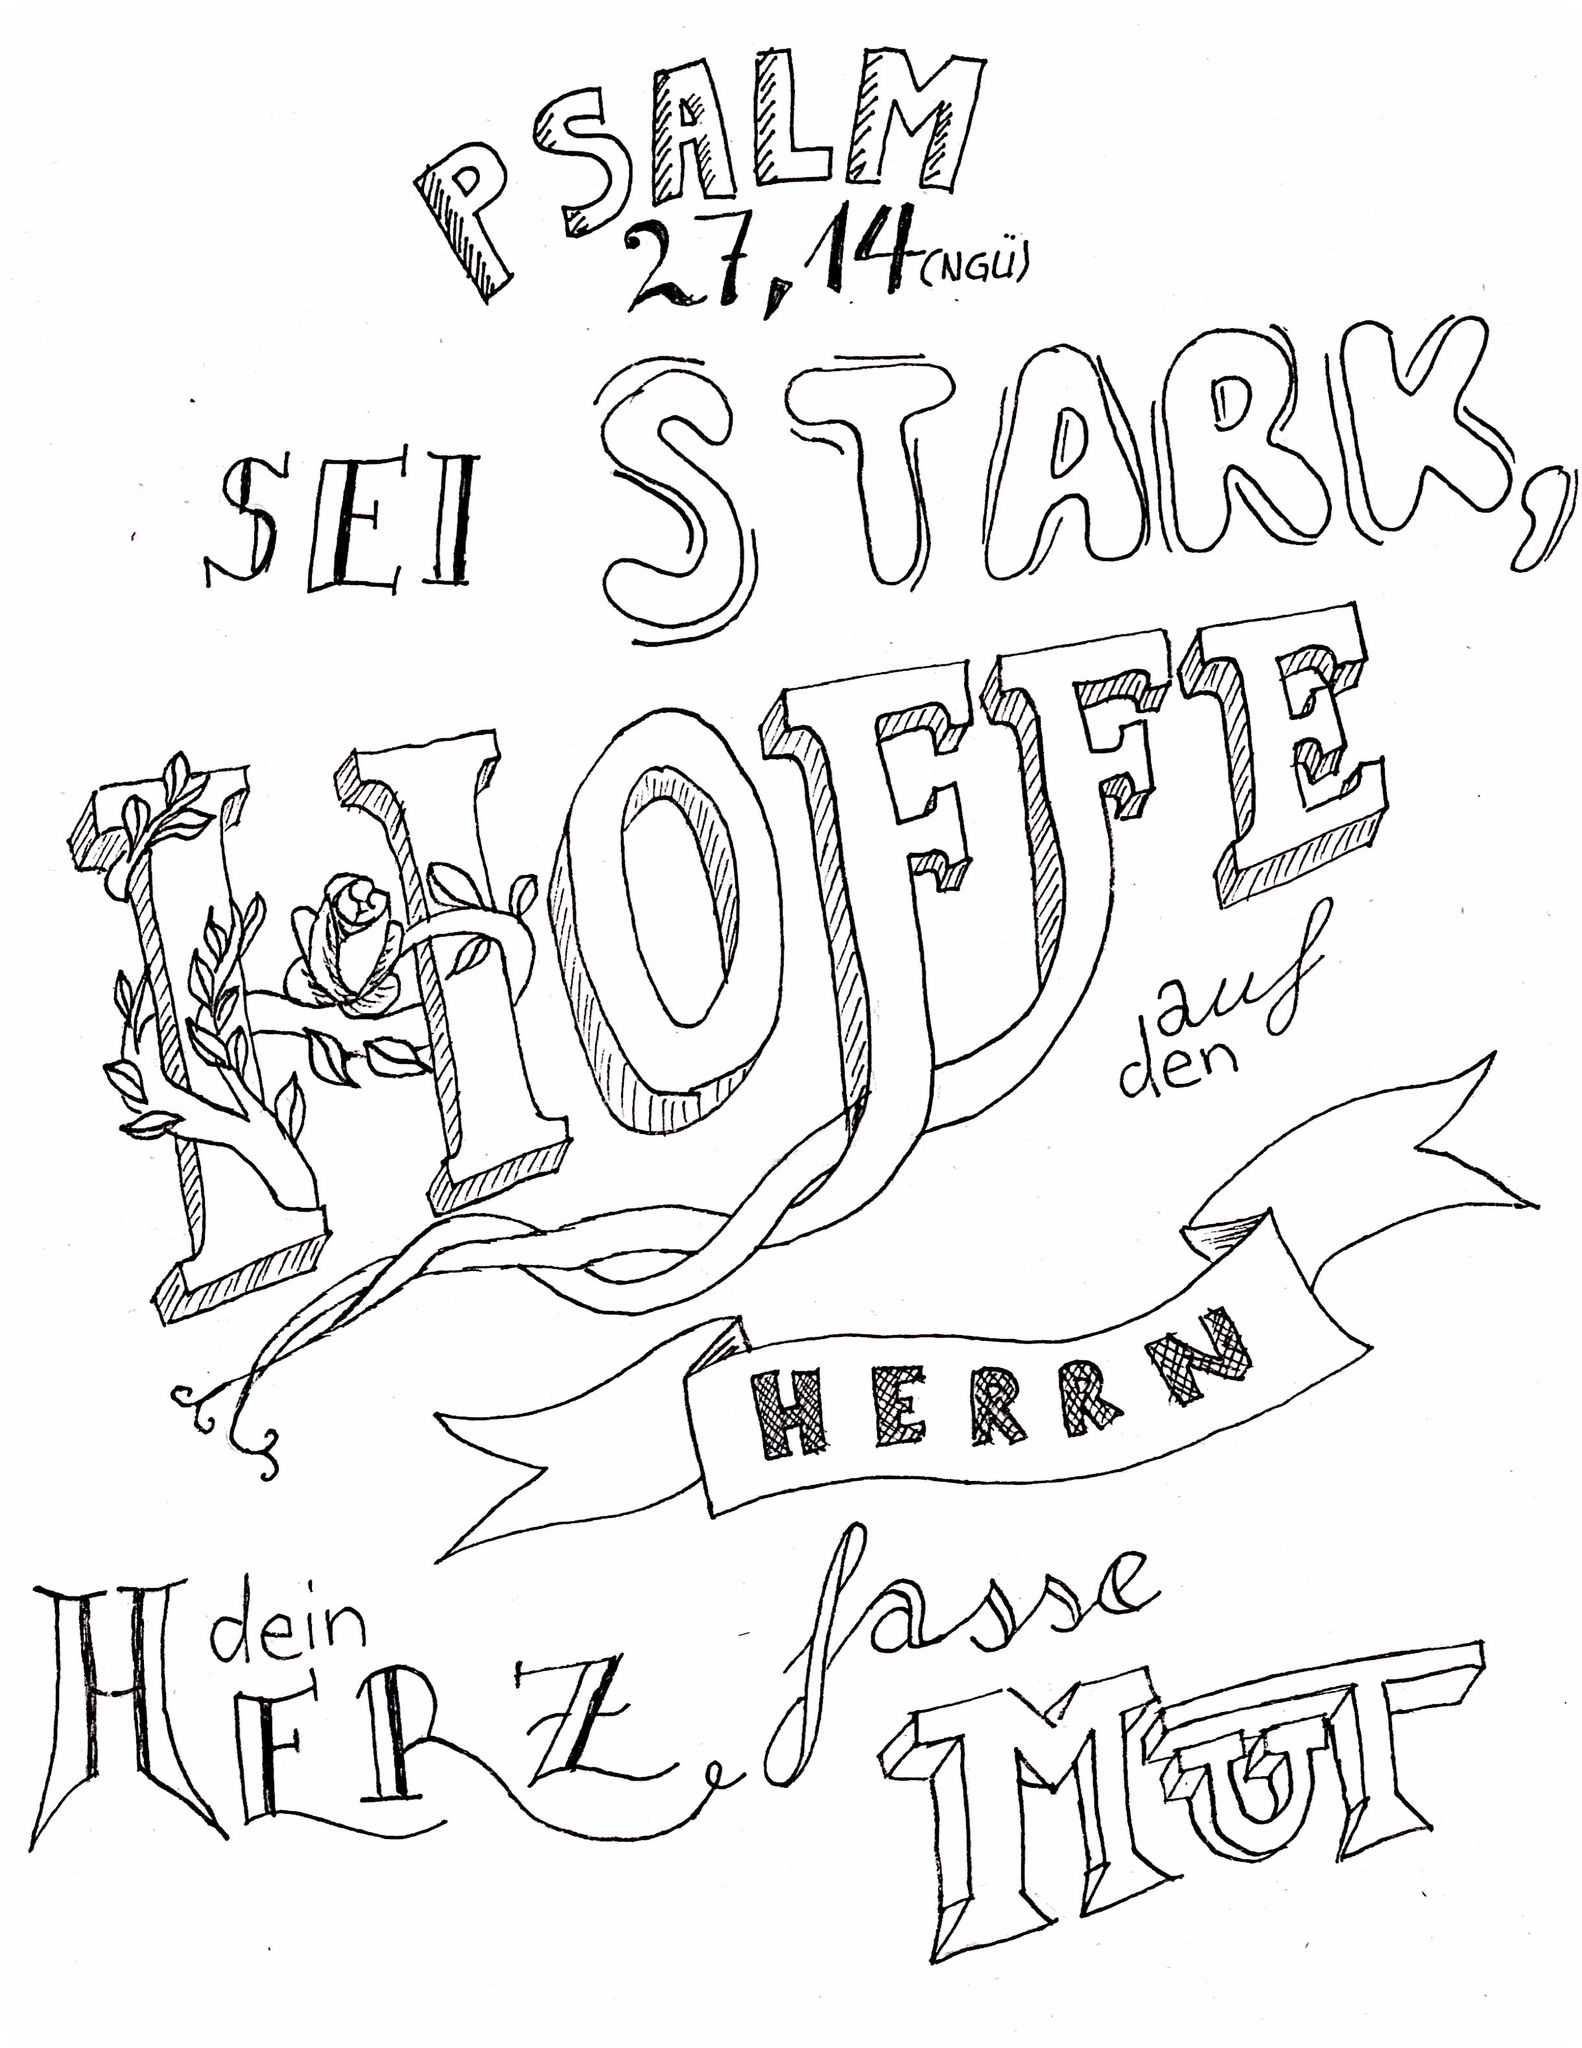 PSALM
27,14 (NGÜ)
SEI STARK,
HOFFE
auf
den
HERRN
dein
HERZ fasse
MUT